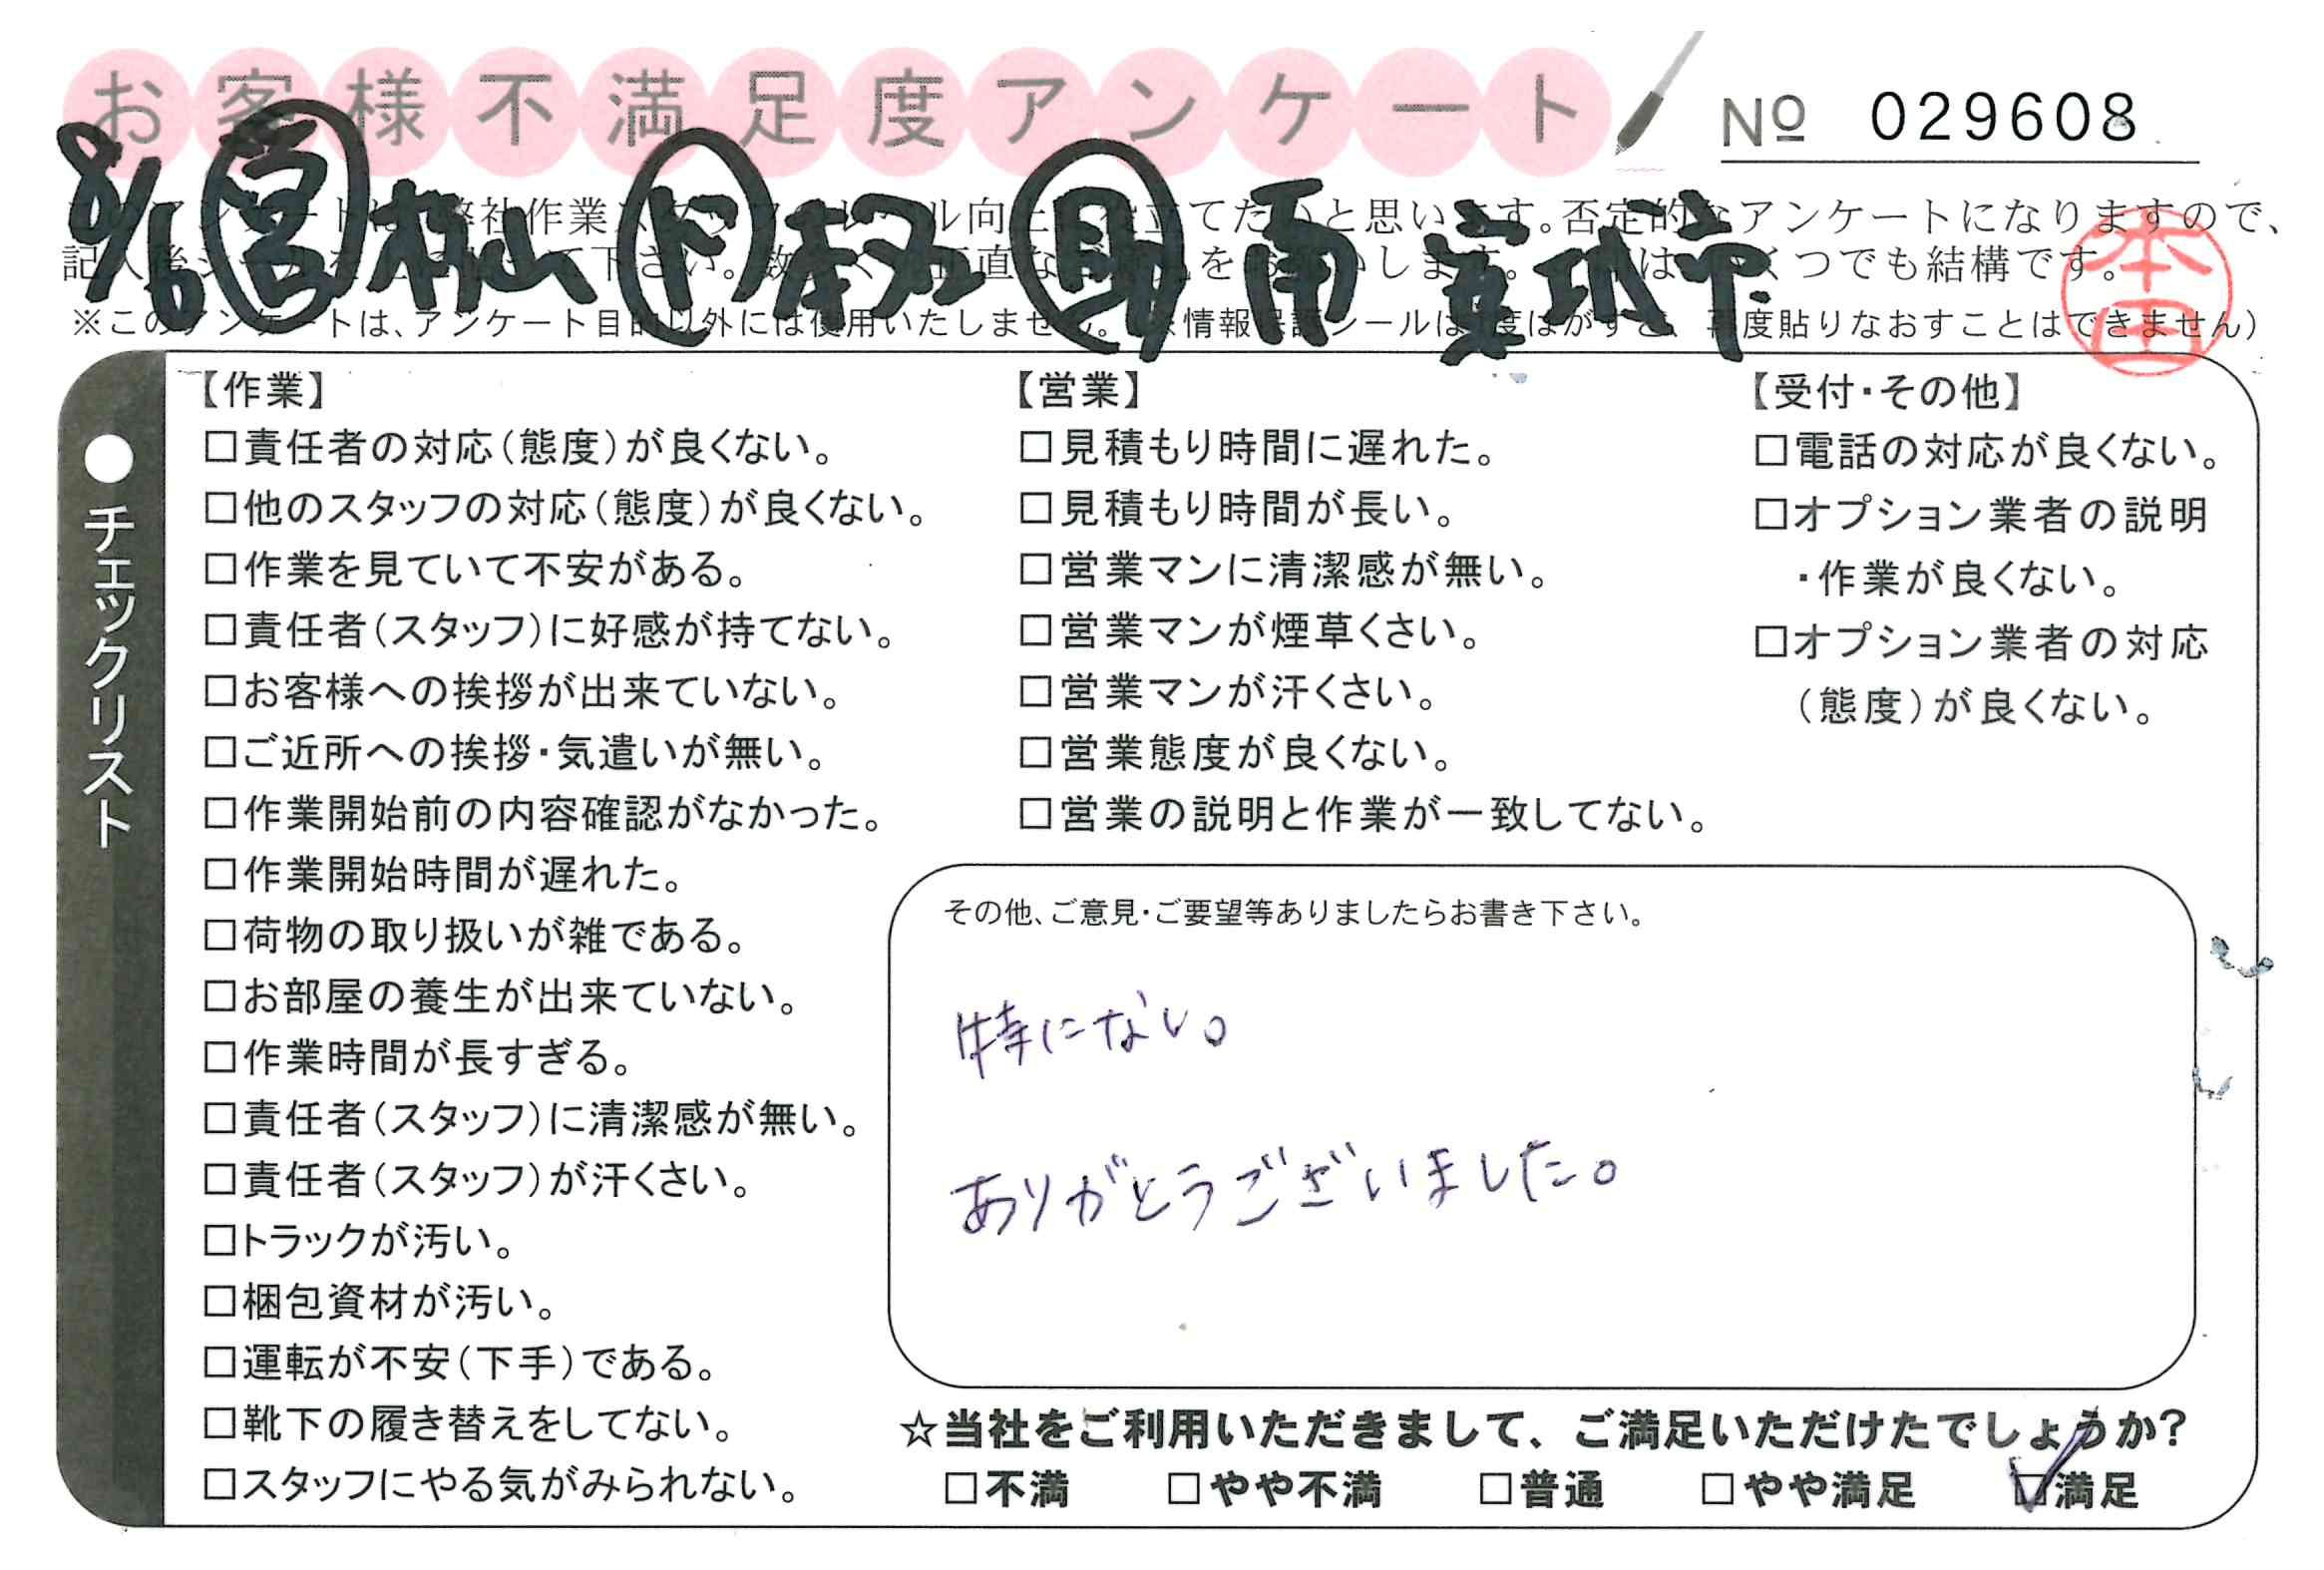 お客様不満足度アンケート
No 029608
8/6 営 桃山 ド 助 雨 安城市
本田
※このアンケートは、アンケート目的以外には使用いたしません。
●チェックリスト
【作業】
□責任者の対応(態度)が良くない。
□他のスタッフの対応(態度)が良くない。
□作業を見ていて不安がある。
□責任者(スタッフ)に好感が持てない。
□お客様への挨拶が出来ていない。
□ご近所への挨拶・気遣いが無い。
□作業開始前の内容確認がなかった。
□作業開始時間が遅れた。
□荷物の取り扱いが雑である。
□お部屋の養生が出来ていない。
□作業時間が長すぎる。
□責任者(スタッフ)に清潔感が無い。
□責任者(スタッフ)が汗くさい。
□トラックが汚い。
□梱包資材が汚い。
□運転が不安(下手)である。
□靴下の履き替えをしてない。
□スタッフにやる気がみられない。
【営業】
□見積もり時間に遅れた。
□見積もり時間が長い。
□営業マンに清潔感が無い。
□営業マンが煙草くさい。
□営業マンが汗くさい。
□営業態度が良くない。
□営業の説明と作業が一致してない。
【受付・その他】
□電話の対応が良くない。
□オプション業者の説明
・作業が良くない。
□オプション業者の対応
(態度)が良くない。
その他、ご意見・ご要望等ありましたらお書き下さい。
特にない。
ありがとうございました。
☆当社をご利用いただきまして、ご満足いただけたでしょうか?
□不満 □やや不満 □普通 □やや満足 ☑満足